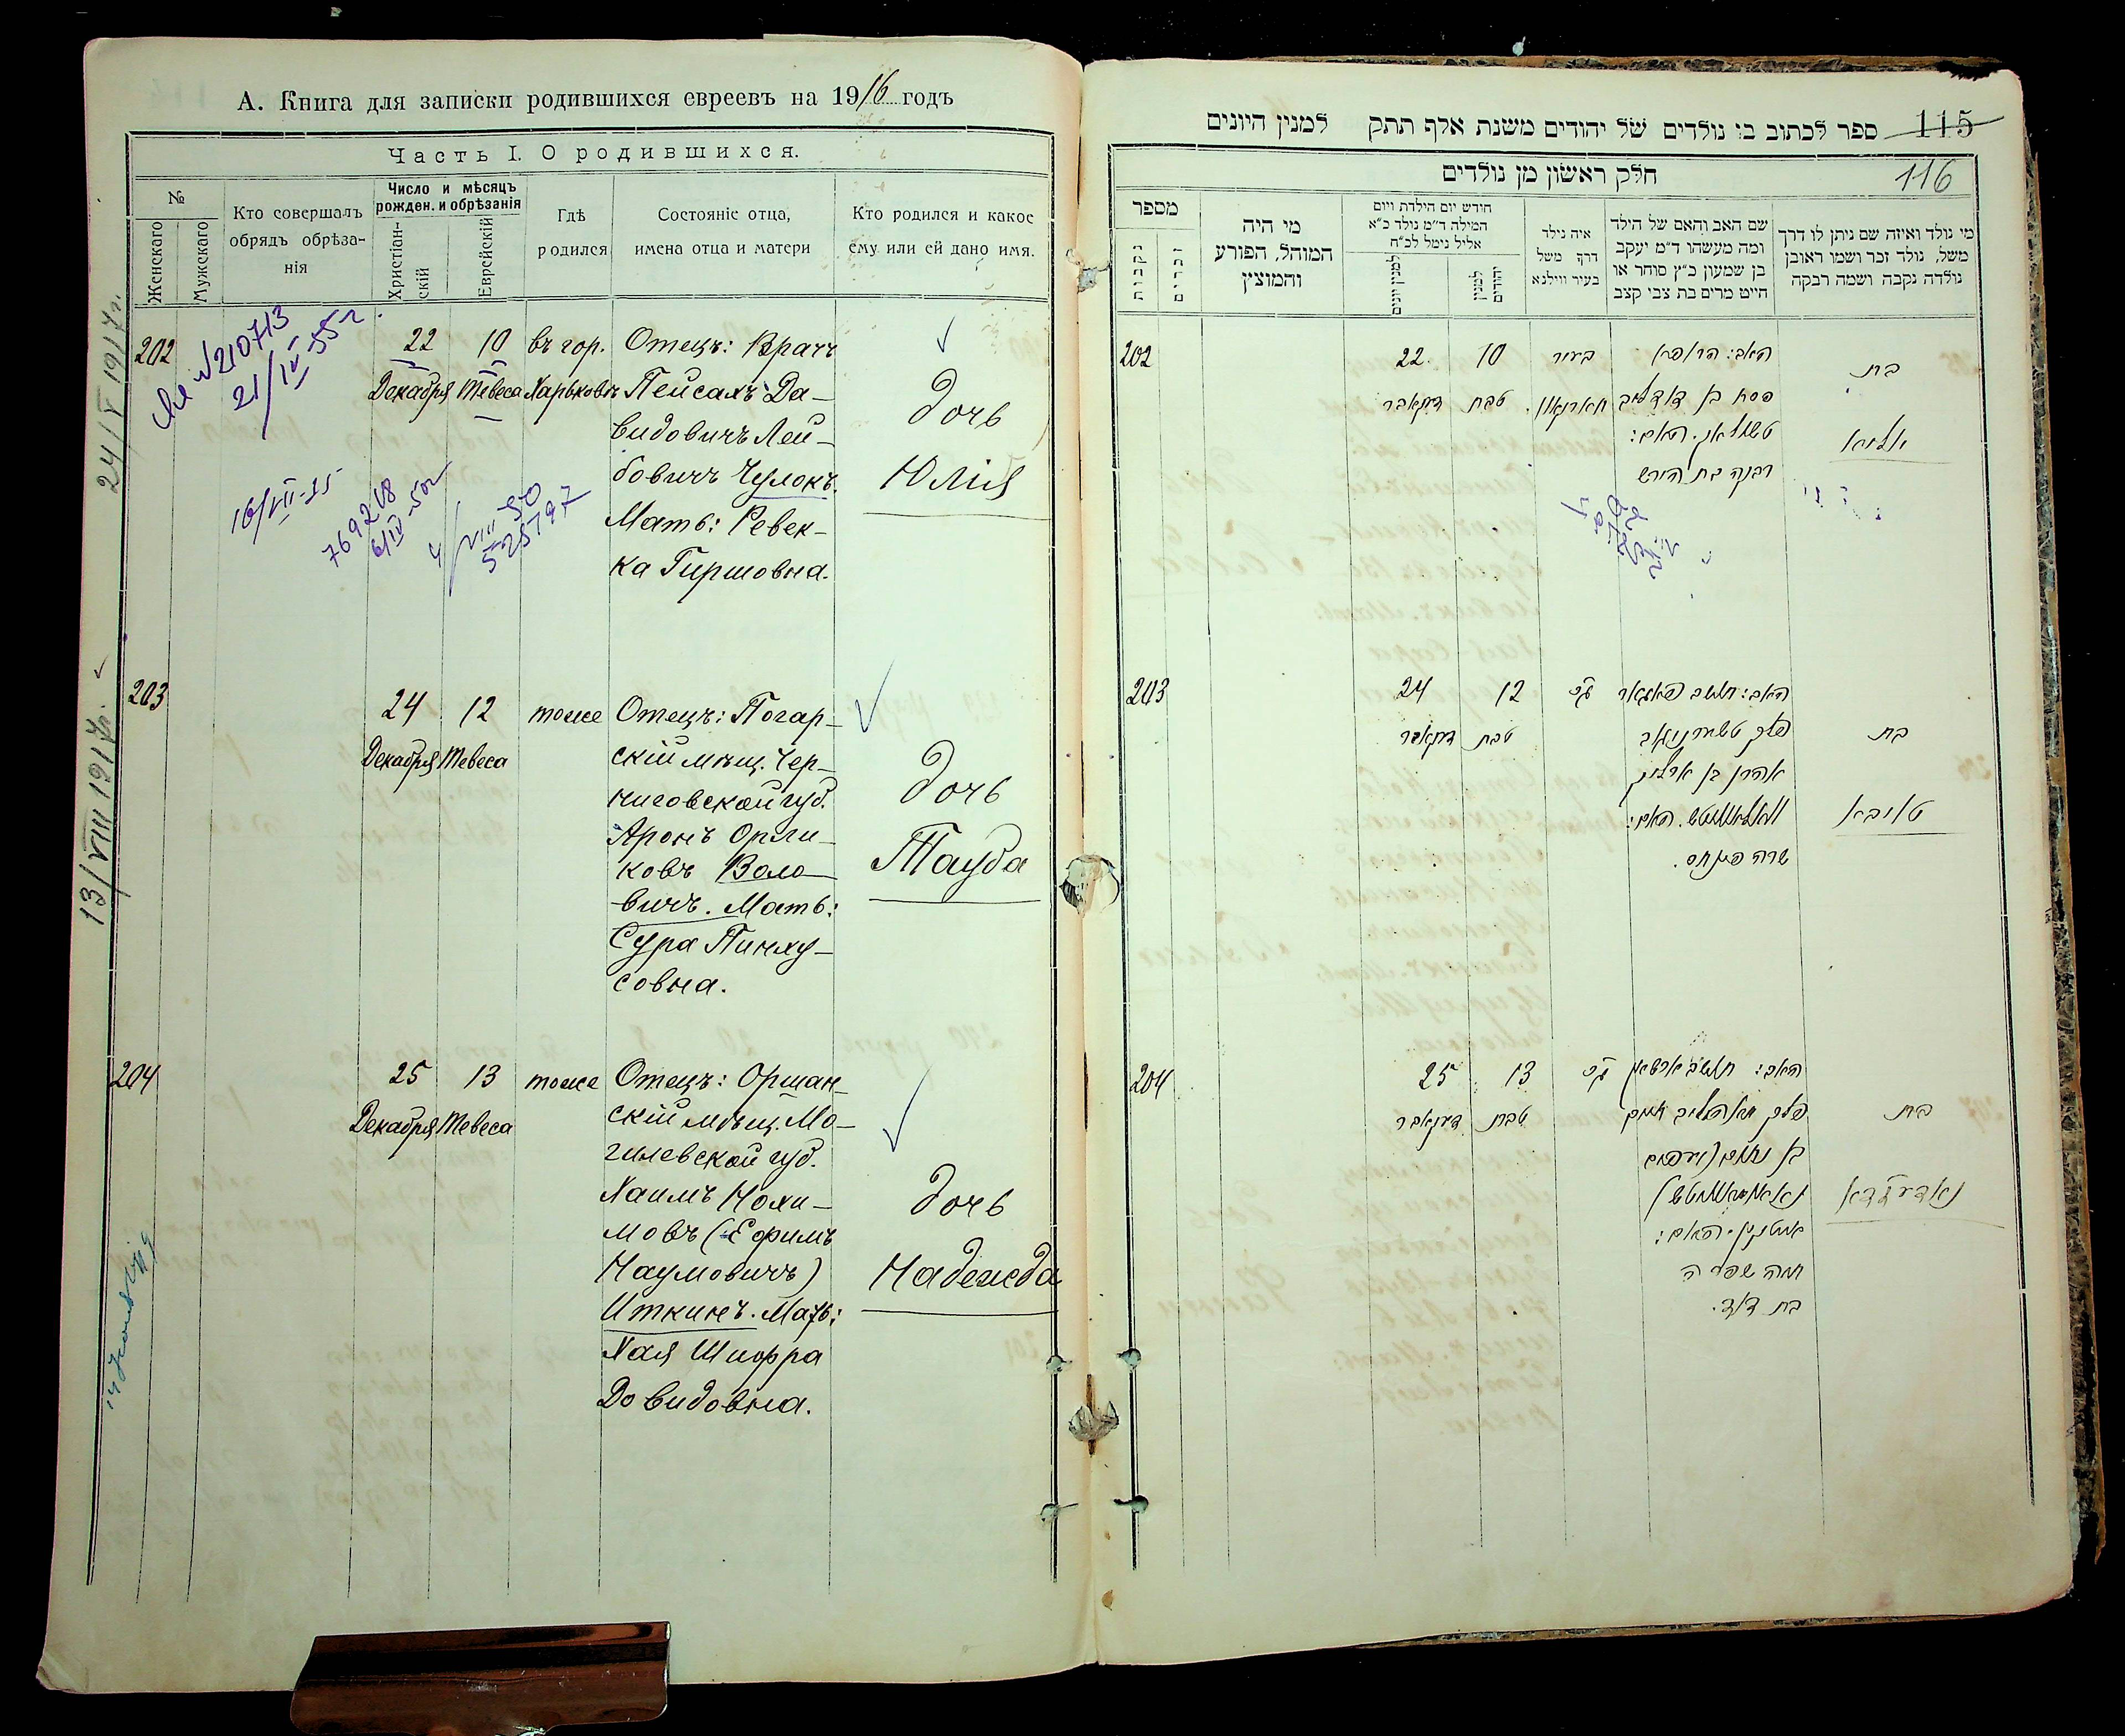 А. Книга для записки родившихся евреевъ на 1916 годъ
Часть I. О родившихся.
№
Женскаго
Мужскаго
Кто совершалъ
обрядъ обрѣза-
нія
Число и мѣсяцъ
рожден. и обрѣзанія
Христіан-
скій
Еврейскій
Гдѣ
родился
Состояніе отца,
имена отца и матери
Кто родился и какое
ему или ей дано имя.
24/V 1917г.
13/VIII 1917г.
202
№210713
21/IV-55г.
16/VII-25
769248
6/IV-50г
4/VIII 50
525797
22
Декабря
10
Тевеса
въ гор.
Харьковѣ
Отецъ: Врачъ
Пейсахъ Да-
видовичъ Лей-
бовичъ Чулокъ.
Мать: Ревек-
ка Гиршовна.
дочь
Юлія
203
24
Декабря
12
Тевеса
тоже
Отецъ: Погар-
скій мѣщ. Чер-
ниговской губ.
Аронъ Орли-
ковъ Воло-
вичъ. Мать:
Сура Пинху-
совна.
дочь
Тауба
204
25
Декабря
13
Тевеса
тоже
Отецъ: Оршан-
скій мѣщ. Мо-
гилевской губ.
Хаимъ Нохи-
мовъ (Ефимъ
Наумовичъ)
Иткинъ. Мать:
Хая Шифра
Довидовна.
дочь
Надежда
ספר לכתוב בו נולדים של יהודים משנת אלף תתק למנין היונים
115
116
חלק ראשון מן נולדים
מספר
נקבות
זכרים
מי היה
המוהל, הפורע
והמוצץ
חודש יום הילדת ויום
המילה ד״מ נולד כ״א
אליל נימל לכ״ח
למנין יונים
למנין
יהודים
איה נילד
דרך משל
בעיר ווילנא
שם האב והאם של הילד
ומה מעשהו ד״מ יעקב
בן שמעון כ״ץ סוחר או
חייט מרים בת צבי קצב
מי נולד ואיזה שם ניתן לו דרך
משל, נולד זכר ושמו ראובן
נולדה נקבה ושמה רבקה
202
22
דעקאבר
10
טבת
בעיר
חארקאוו
האב: הרופא
פסח בן דוד לייב
טשולאק. האם:
רבקה בת הירש
בת
יוליא
203
24
דעקאבר
12
טבת
אהרן בן
האם:
שרה פינחס.
בת
טויבא
204
25
דעקאבר
13
טבת
האב:
פלך מאהילעוו חיים
בן נחום (יעפים
נאומאוויטש)
איטקין. האם:
חיה שפרה
בת דוד.
בת
נאדעזדא